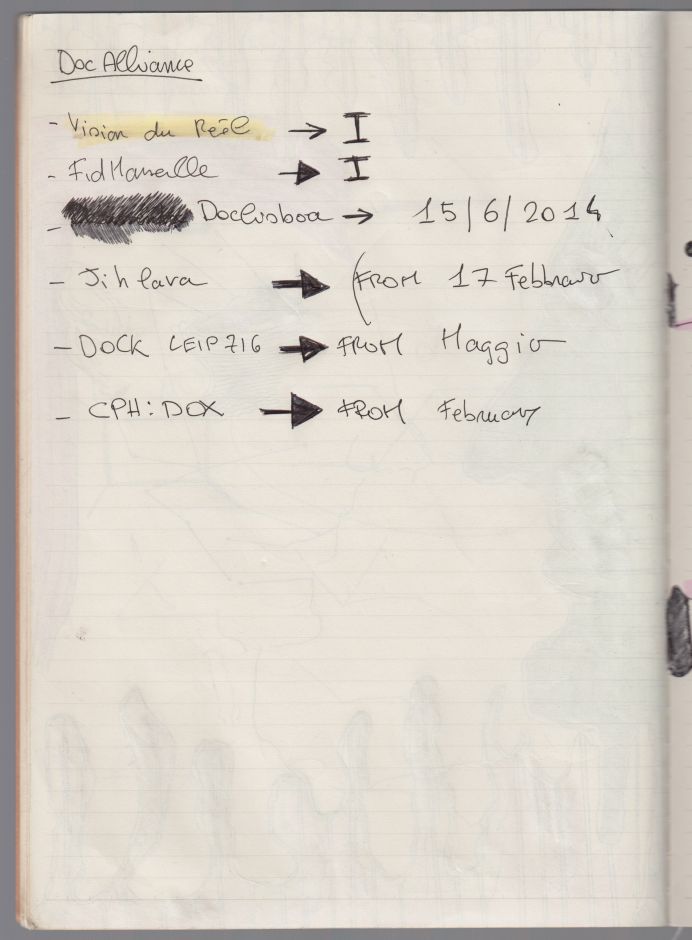 Doc Alliance
- Vision du Réel → I
- Fid Marseille → I
- Doclisboa → 15/6/2014
- Jihlava → (FROM 17 Febbraio
- DOCK LEIPZIG → FROM Maggio
- CPH:DOX → FROM February